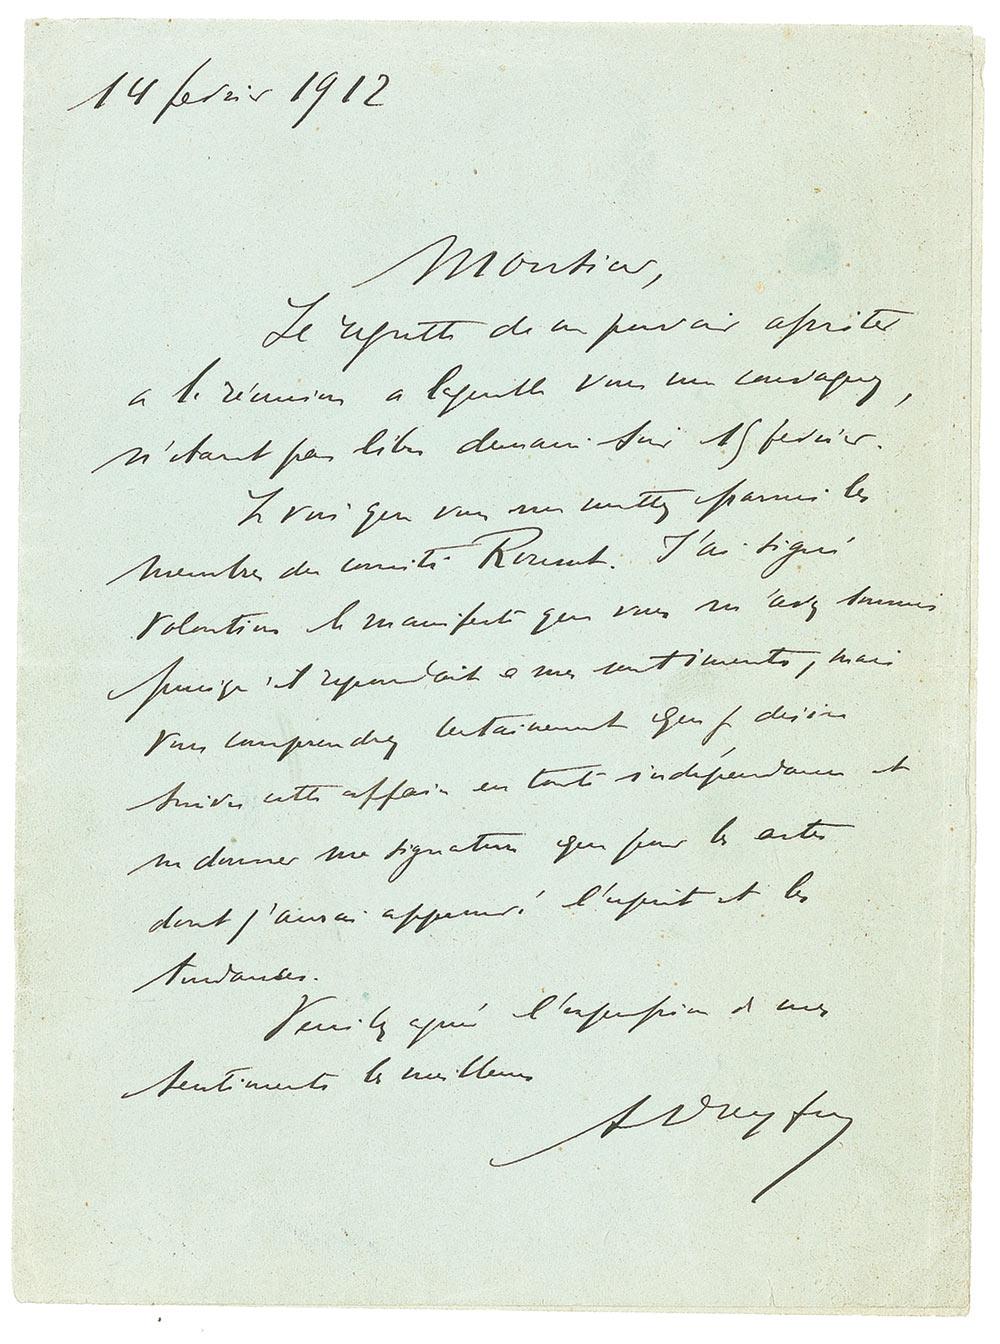 14 fevrier 1912
Monsieur,
Je regrette de ne pouvoir assister
a la réunion a laquelle vous me convoquez,
n'étant pas libre demain soir 15 fevrier.
Je vois que vous me mettez parmi les
membres du comité Rousset. J'ai signé
volontiers le manifeste que vous m'avez soumis
puisqu'il repondait a mes sentiments, mais
vous comprendrez certainement que je désire
suivre cette affaire en toute indépendance et
ne donner ma signature que pour les actes
dont j'aurai approuvé l'esprit et les
tendances.
Veuillez agréer l'expression de mes
sentiments les meilleurs
A Dreyfus